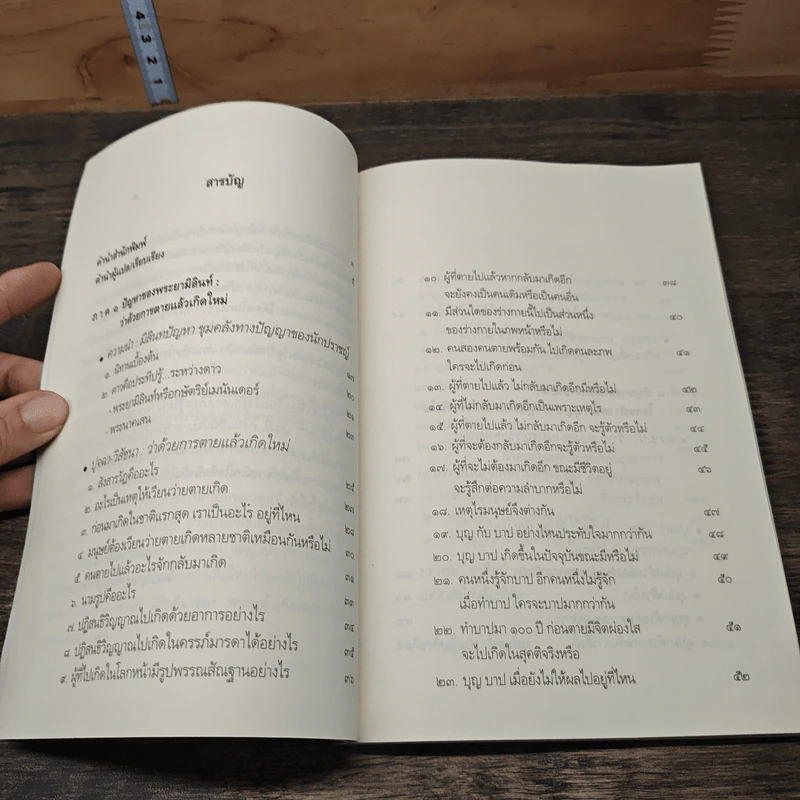 4
3
2
1
สารบัญ
คำนำสำนักพิมพ์
คำนำผู้แปล/เรียบเรียง
ภาค ๑ ปัญหาของพระยามิลินท์ :
ว่าด้วยการตายแล้วเกิดใหม่
• ความนำ : มิลินทปัญหา ขุมคลังทางปัญญาของนักปราชญ์
๑. นิทานเบื้องต้น ๑๗
๒. ดาวคือประทีปรู้...ระหว่างดาว ๒๐
- พระยามิลินท์หรือกษัตริย์เมนันเดอร์ ๒๑
- พระนาคเสน ๒๓
• ปุจฉา-วิสัชนา : ว่าด้วยการตายแล้วเกิดใหม่
๑. สังสารวัฏคืออะไร ๒๕
๒. อะไรเป็นเหตุให้เวียนว่ายตายเกิด ๒๗
๓. ก่อนมาเกิดในชาติแรกสุด เราเป็นอะไร อยู่ที่ไหน ๒๘
๔. มนุษย์ต้องเวียนว่ายตายเกิดหลายชาติเหมือนกันหรือไม่ ๓๐
๕. คนตายไปแล้วอะไรจักกลับมาเกิด ๓๑
๖. นามรูปคืออะไร ๓๓
๗. ปฏิสนธิวิญญาณไปเกิดด้วยอาการอย่างไร ๓๔
๘. ปฏิสนธิวิญญาณไปเกิดในครรภ์มารดาได้อย่างไร ๓๕
๙. ผู้ที่ไปเกิดในโลกหน้ามีรูปพรรณสัณฐานอย่างไร ๓๖
๑๐. ผู้ที่ตายไปแล้วหากกลับมาเกิดอีก ๓๘
จะยังคงเป็นคนเดิมหรือเป็นคนอื่น
๑๑. มีส่วนใดของร่างกายนี้ไปเป็นส่วนหนึ่ง ๔๐
ของร่างกายในภพหน้าหรือไม่
๑๒. คนสองคนตายพร้อมกัน ไปเกิดคนละภพ ๔๑
ใครจะไปเกิดก่อน
๑๓. ผู้ที่ตายไปแล้ว ไม่กลับมาเกิดอีกมีหรือไม่ ๔๒
๑๔. ผู้ที่ไม่กลับมาเกิดอีกเป็นเพราะเหตุไร ๔๓
๑๕. ผู้ที่ตายไปแล้ว ไม่กลับมาเกิดอีก จะรู้ตัวหรือไม่ ๔๔
๑๖. ผู้ที่จะต้องกลับมาเกิดอีกจะรู้ตัวหรือไม่ ๔๕
๑๗. ผู้ที่จะไม่ต้องมาเกิดอีก ขณะมีชีวิตอยู่ ๔๖
จะรู้สึกต่อความลำบากหรือไม่
๑๘. เหตุไรมนุษย์จึงต่างกัน ๔๗
๑๙. บุญ กับ บาป อย่างไหนประทับใจมากกว่ากัน ๔๘
๒๐. บุญ บาป เกิดขึ้นในปัจจุบันขณะมีหรือไม่ ๔๙
๒๑. คนหนึ่งรู้จักบาป อีกคนหนึ่งไม่รู้จัก ๕๐
เมื่อทำบาป ใครจะบาปมากกว่ากัน
๒๒. ทำบาปมา ๑๐๐ ปี ก่อนตายมีจิตผ่องใส ๕๑
จะไปเกิดในสุคติจริงหรือ
๒๓. บุญ บาป เมื่อยังไม่ให้ผลไปอยู่ที่ไหน ๕๒